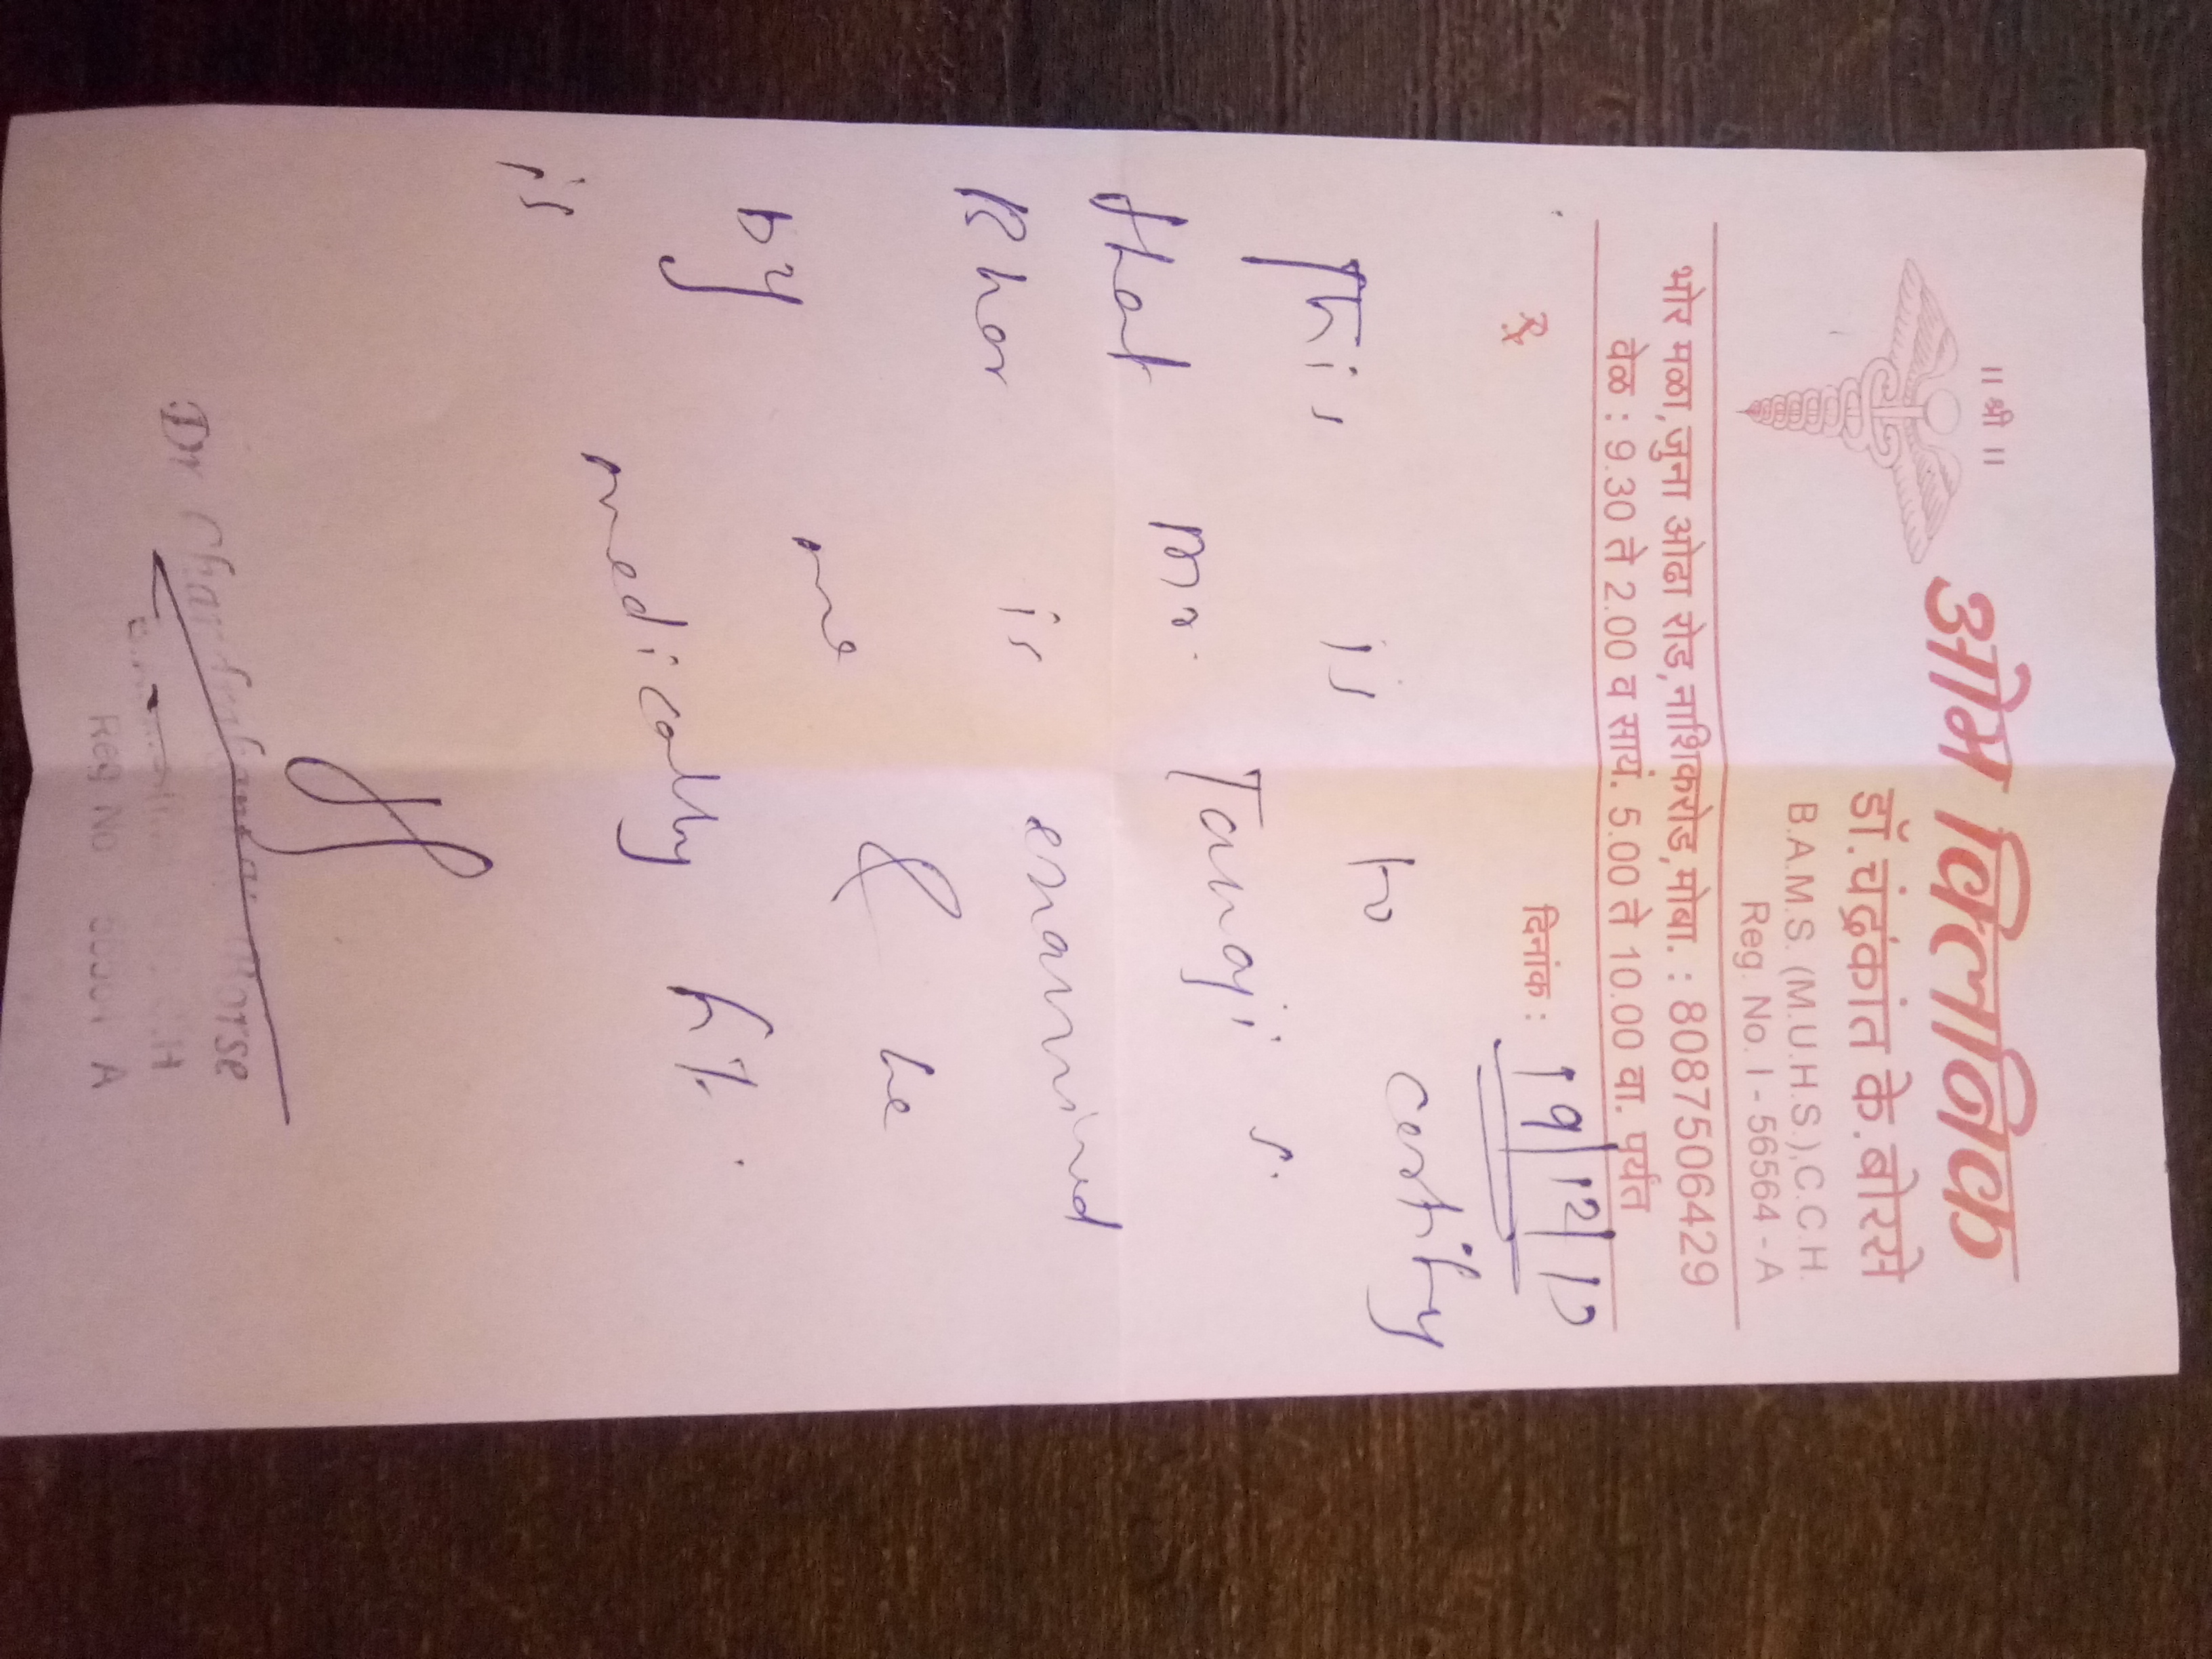 ॥ श्री ॥
ओम क्लिनिक
डॉ. चंद्रकांत के. बोरसे
B.A.M.S. (M.U.H.S.), C.C.H.
Reg. No. I - 56564 - A
भोर मळा, जुना ओढा रोड, नाशिकरोड, मोबा. : 8087506429
वेळ : 9.30 ते 2.00 व सायं. 5.00 ते 10.00 वा. पर्यंत
℞ दिनांक : 19/12/17
This is to certify
that Mr. Tanaji S.
is examined
by me & he
is medically fit.
Dr Borse
C.H
Reg No A